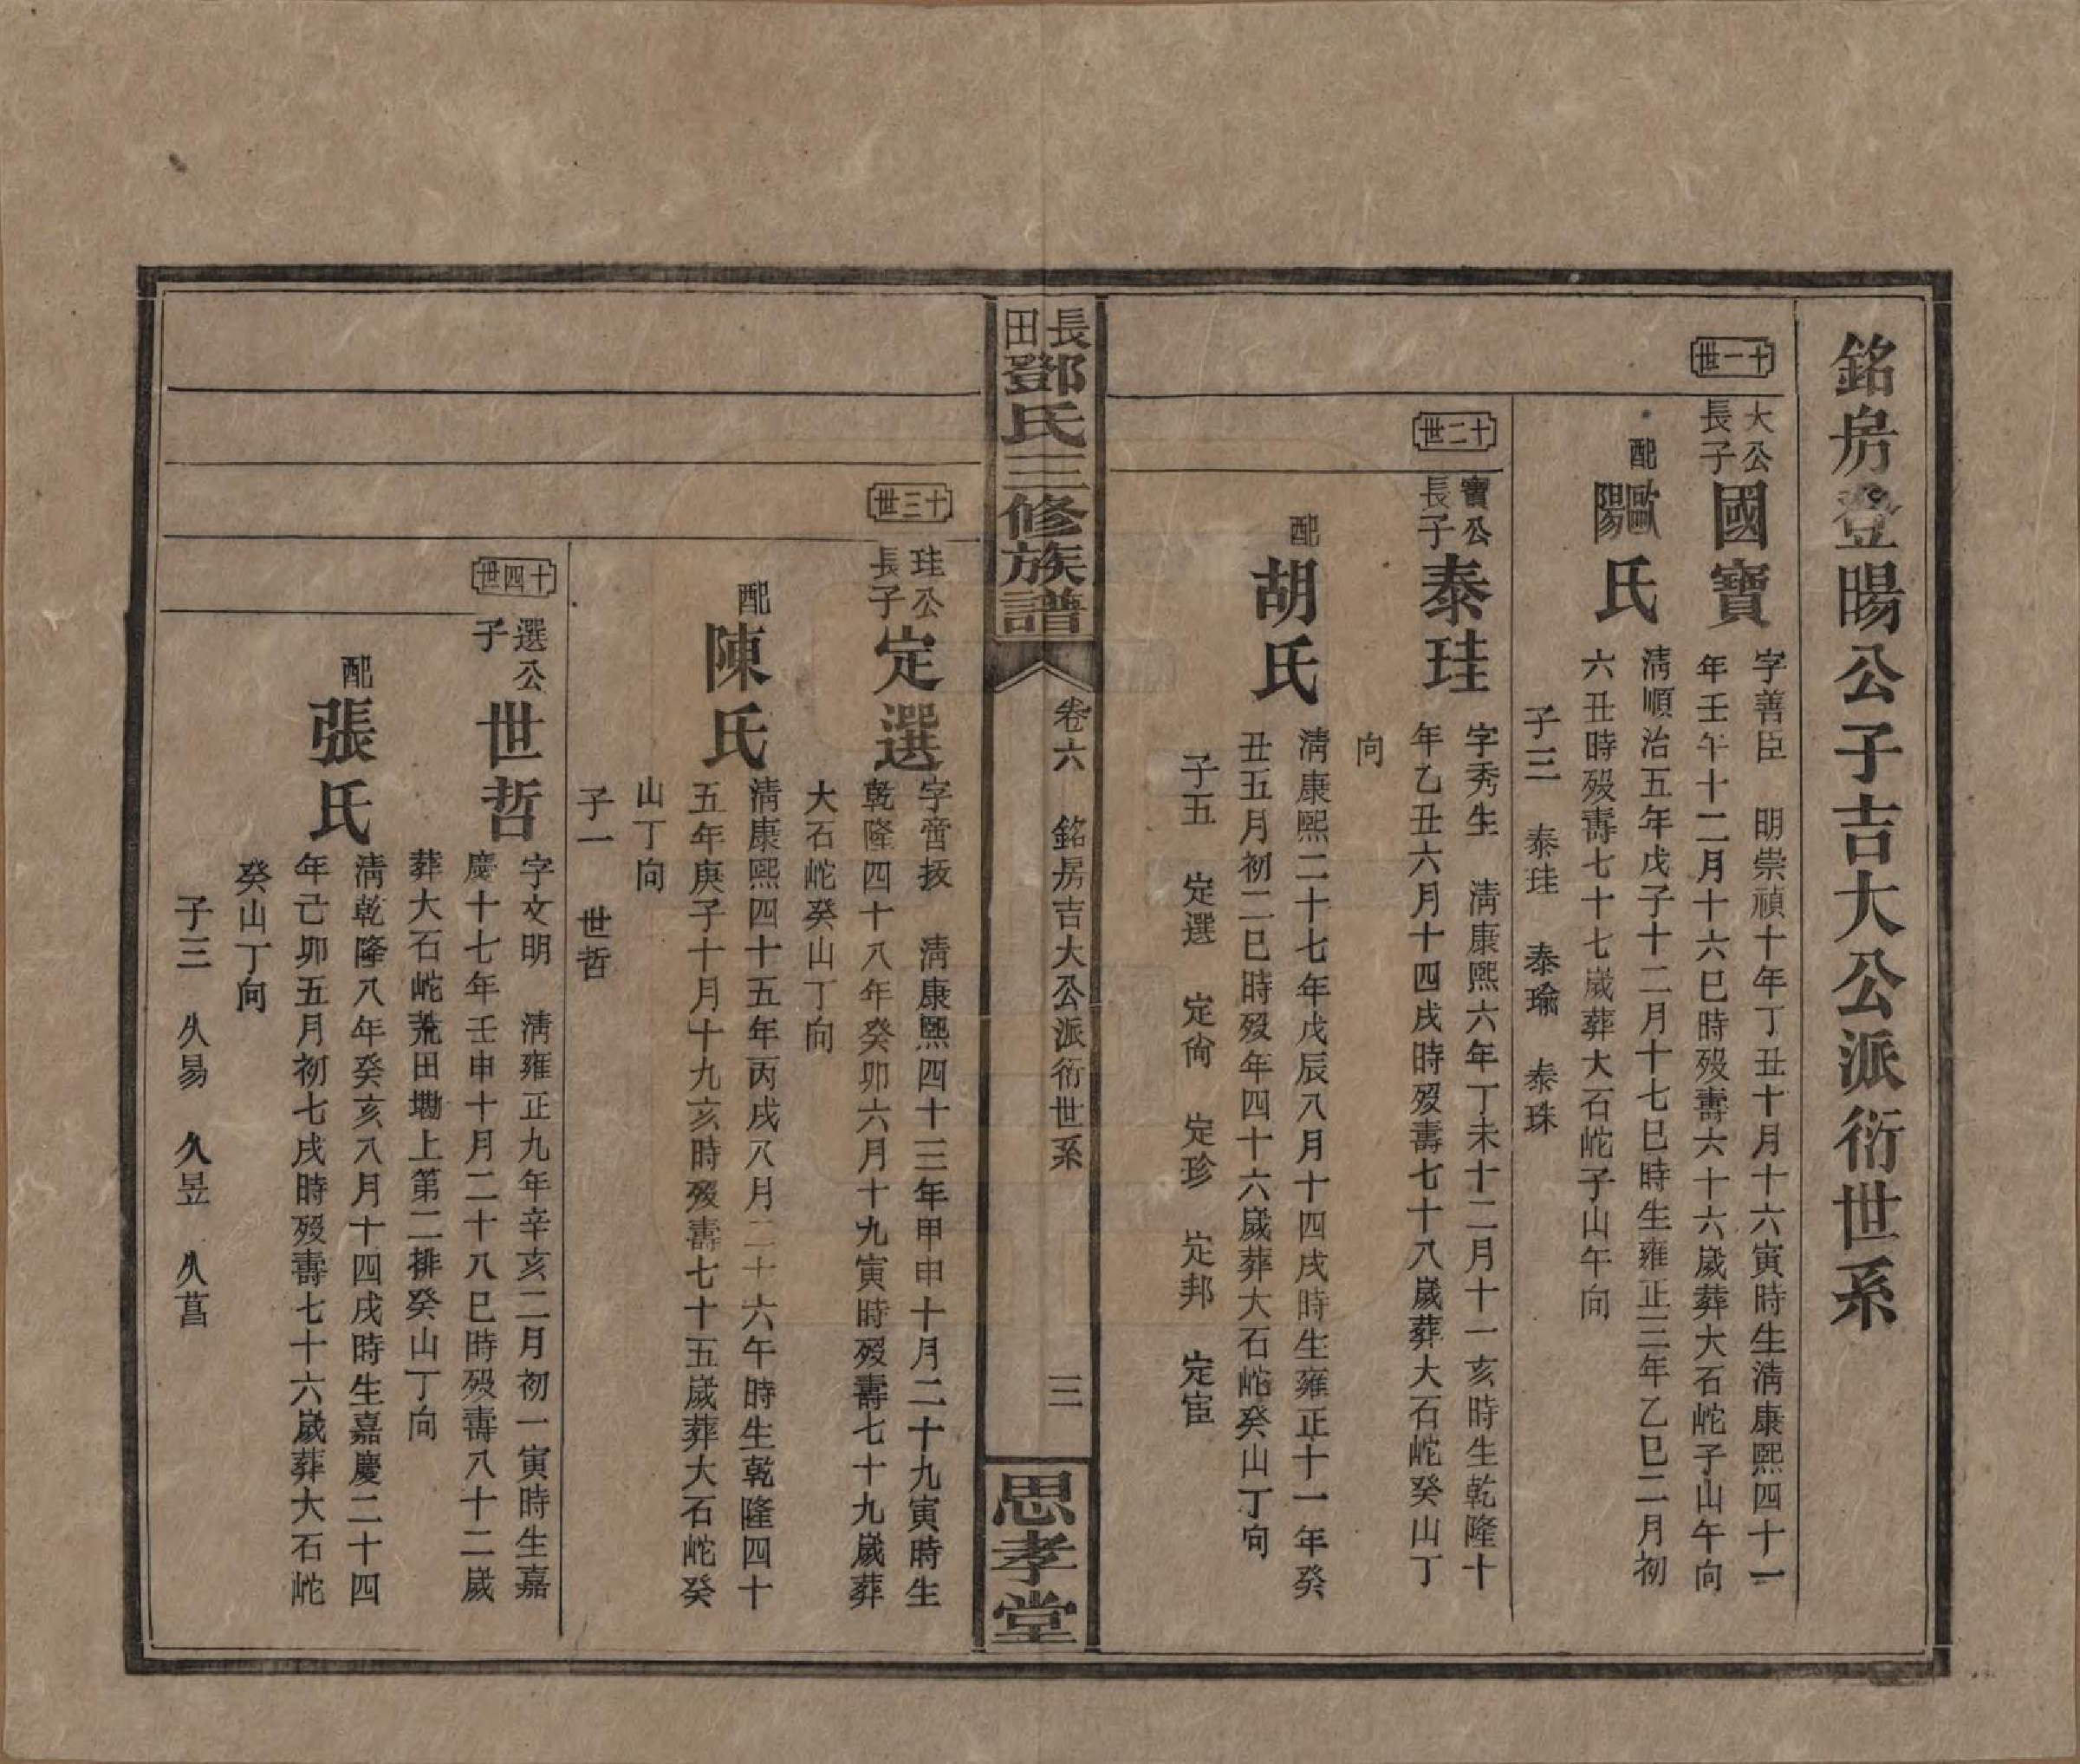 銘房登暘公子吉大公派衍世系
十一世
大公長子
國寶
字善臣　明崇禎十年丁丑十月十六寅時生清康熙四十一
年壬午十二月十六巳時歿壽六十六歲葬大石岮子山午向
配
歐陽氏
清順治五年戊子十二月十七巳時生雍正三年乙巳二月初
六丑時歿壽七十七歲葬大石岮子山午向
子三　泰珪　泰瑜　泰珠
十二世
寶公長子
泰珪
字秀生　清康熙六年丁未十二月十一亥時生乾隆十
年乙丑六月十四戌時歿壽七十八歲葬大石岮癸山丁
向
配
胡氏
清康熙二十七年戊辰八月十四戌時生雍正十一年癸
丑五月初二巳時歿年四十六歲葬大石岮癸山丁向
子五　定選　定尙　定珍　定邦　定宦
長田鄧氏三修族譜
卷六　銘房吉大公派衍世系
三
思孝堂
十三世
珪公長子
定選
字啻拔　清康熙四十三年甲申十月二十九寅時生
乾隆四十八年癸卯六月十九寅時歿壽七十九歲葬
大石岮癸山丁向
配
陳氏
清康熙四十五年丙戌八月二十六午時生乾隆四十
五年庚子十月十九亥時歿壽七十五歲葬大石岮癸
山丁向
子一　世哲
十四世
選公子
世哲
字文明　清雍正九年辛亥二月初一寅時生嘉
慶十七年壬申十月二十八巳時歿壽八十二歲
葬大石岮荒田墈上第二排癸山丁向
配
張氏
清乾隆八年癸亥八月十四戌時生嘉慶二十四
年己卯五月初七戌時歿壽七十六歲葬大石岮
癸山丁向
子三　久易　久昱　久菖